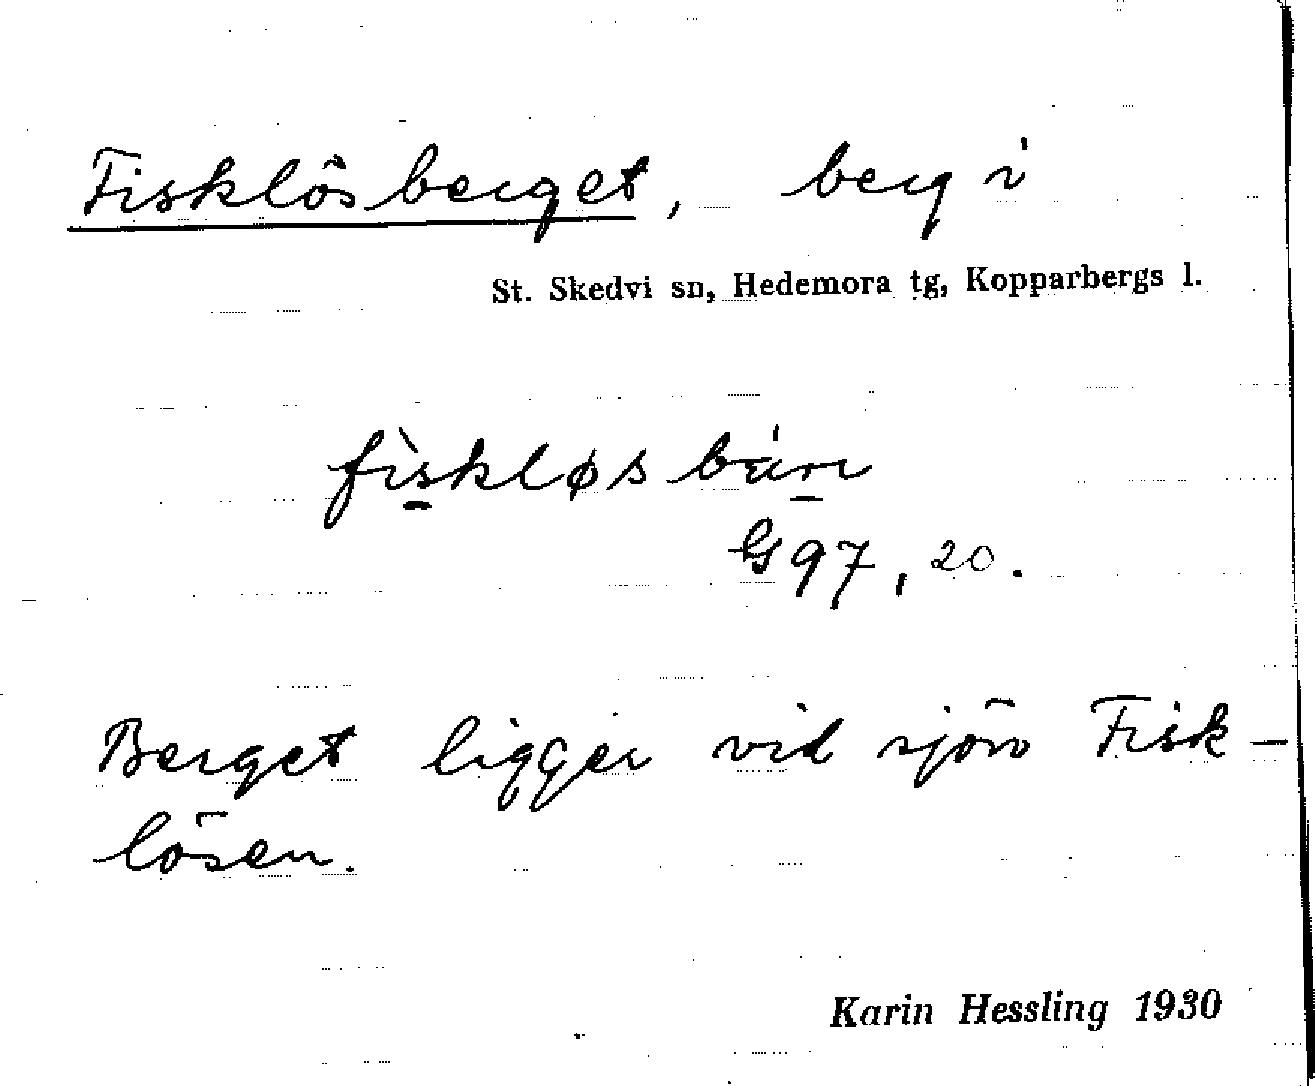 Fisklösberget, berg i
St. Skedvi sn, Hedemora tg, Kopparbergs l.
fìskløs
G 97, 20.
Berget ligger vid sjön Fisk-
lösen.
Karin Hessling 1930